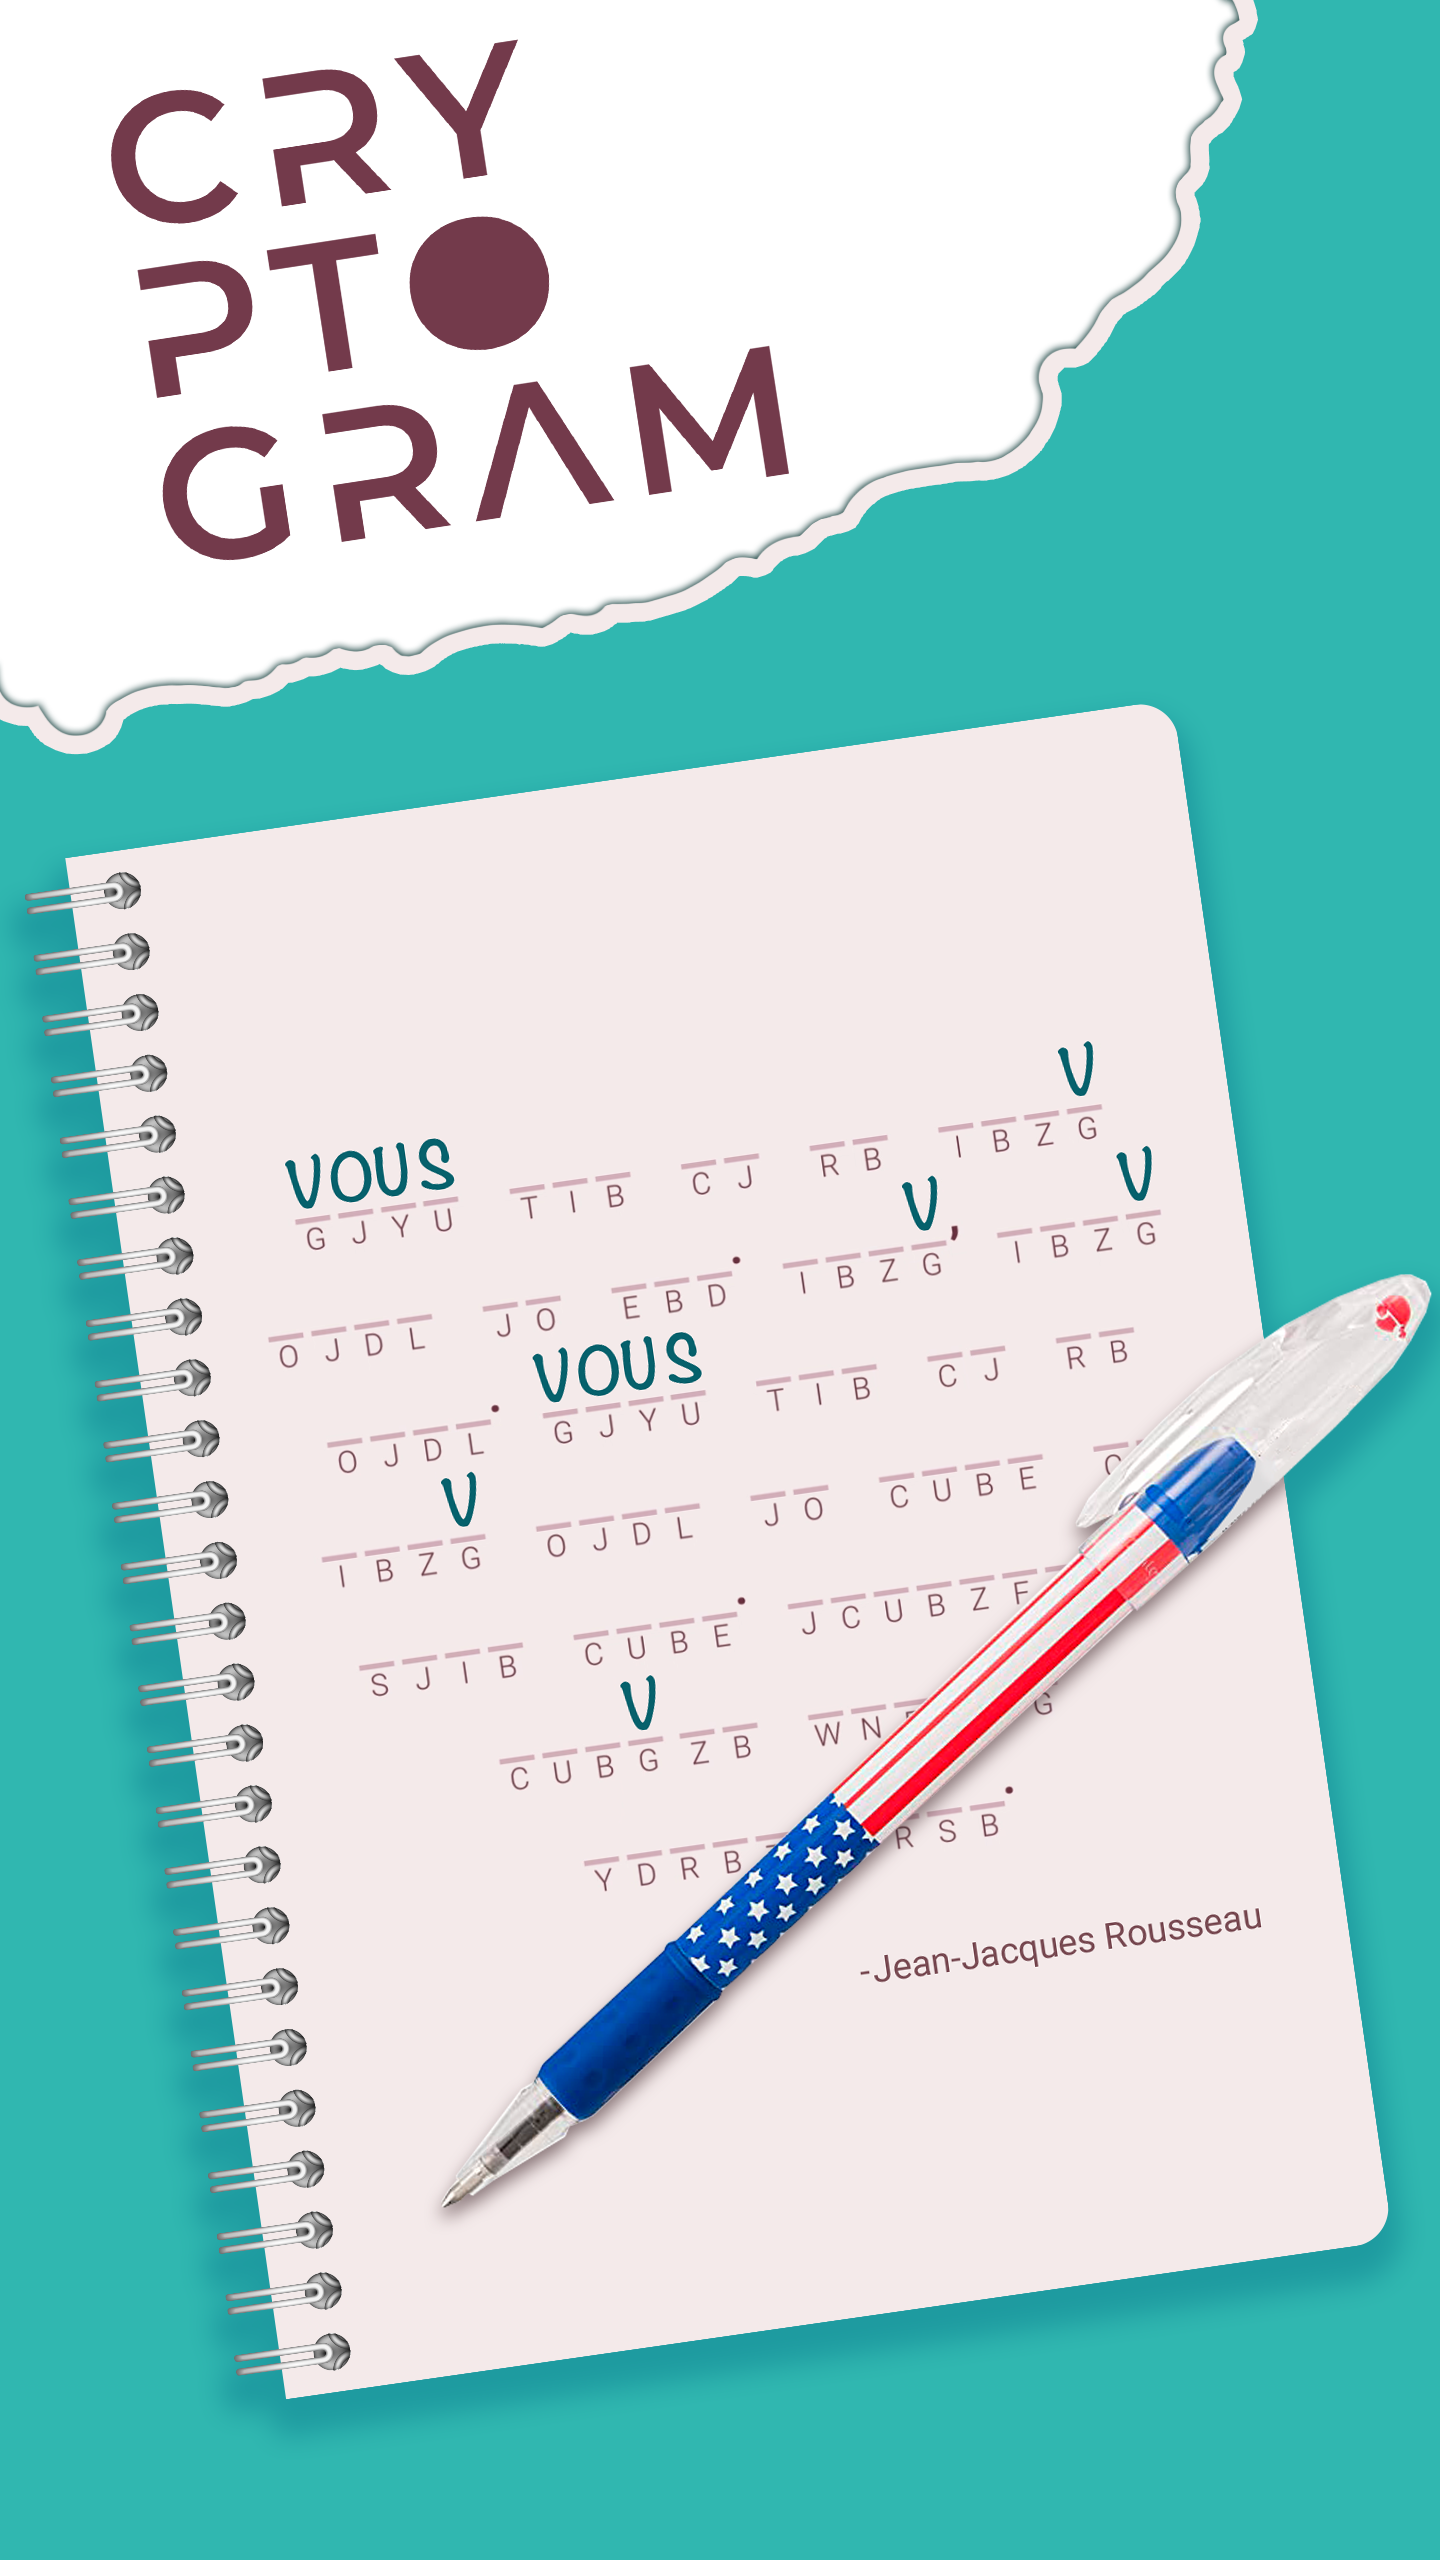 CRY
PTO
GRAM
VOUS V
GJYU TIB CJ RB IBZG
V V
OJDL JO EBD. IBZG, IBZG
VOUS
OJDL. GJYU TIB CJ RB
V
IBZG OJDL JO CUBE
SJIB CUBE. JCUBZF
V
CUBGZB WN G
YDRB RSB.
-Jean-Jacques Rousseau